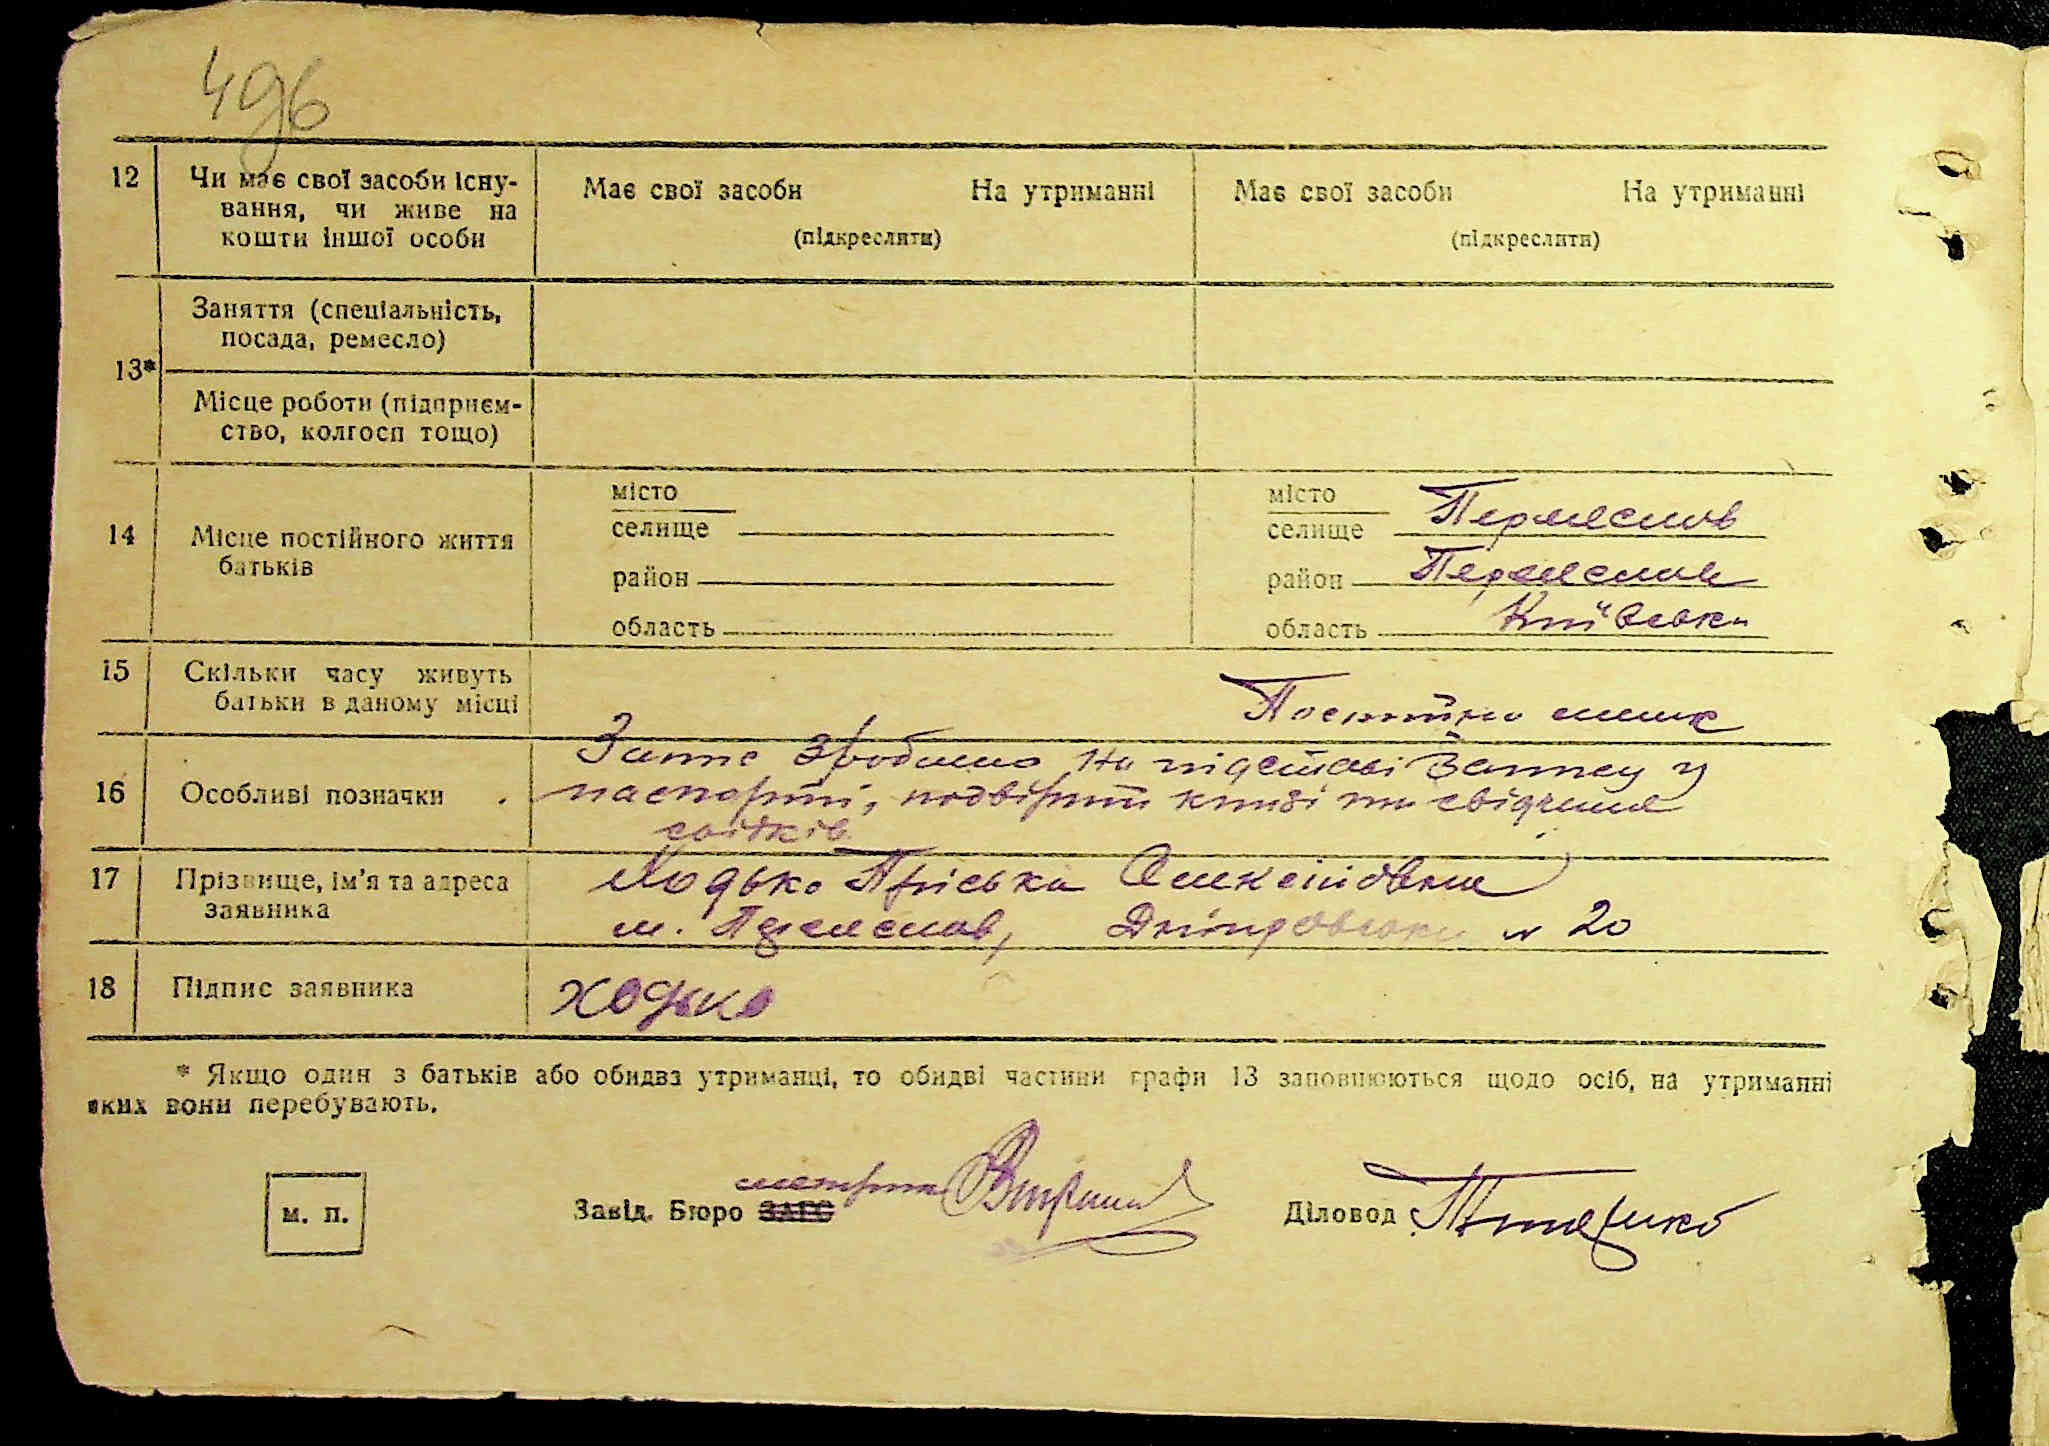 496
12 Чи має свої засоби існу-
вання, чи живе на
кошти іншої особи
Має свої засоби На утриманні
(підкреслити)
Має свої засоби На утриманні
(підкреслити)
13*
Заняття (спеціальність,
посада, ремесло)
Місце роботи (підприєм-
ство, колгосп тощо)
14 Місце постійного життя
батьків
місто
селище
район
область
місто
селище Переяслав
район Переяслав
область Київська
15 Скільки часу живуть
батьки в даному місці
Постійно
16 Особливі позначки
Запис зроблено на підставі запису у
паспорті, подвірній книзі та свідчення
свідків
17 Прізвище, ім'я та адреса
заявника
Ходько Пріська Олексіївна
м. Переяслав, Дніпровська № 20
18 Підпис заявника
Ходько
* Якщо один з батьків або обидва утриманці, то обидві частини графи 13 заповнюються щодо осіб, на утриманні
яких вони перебувають.
м. п.
Завід. Бюро ЗАГС
Діловод